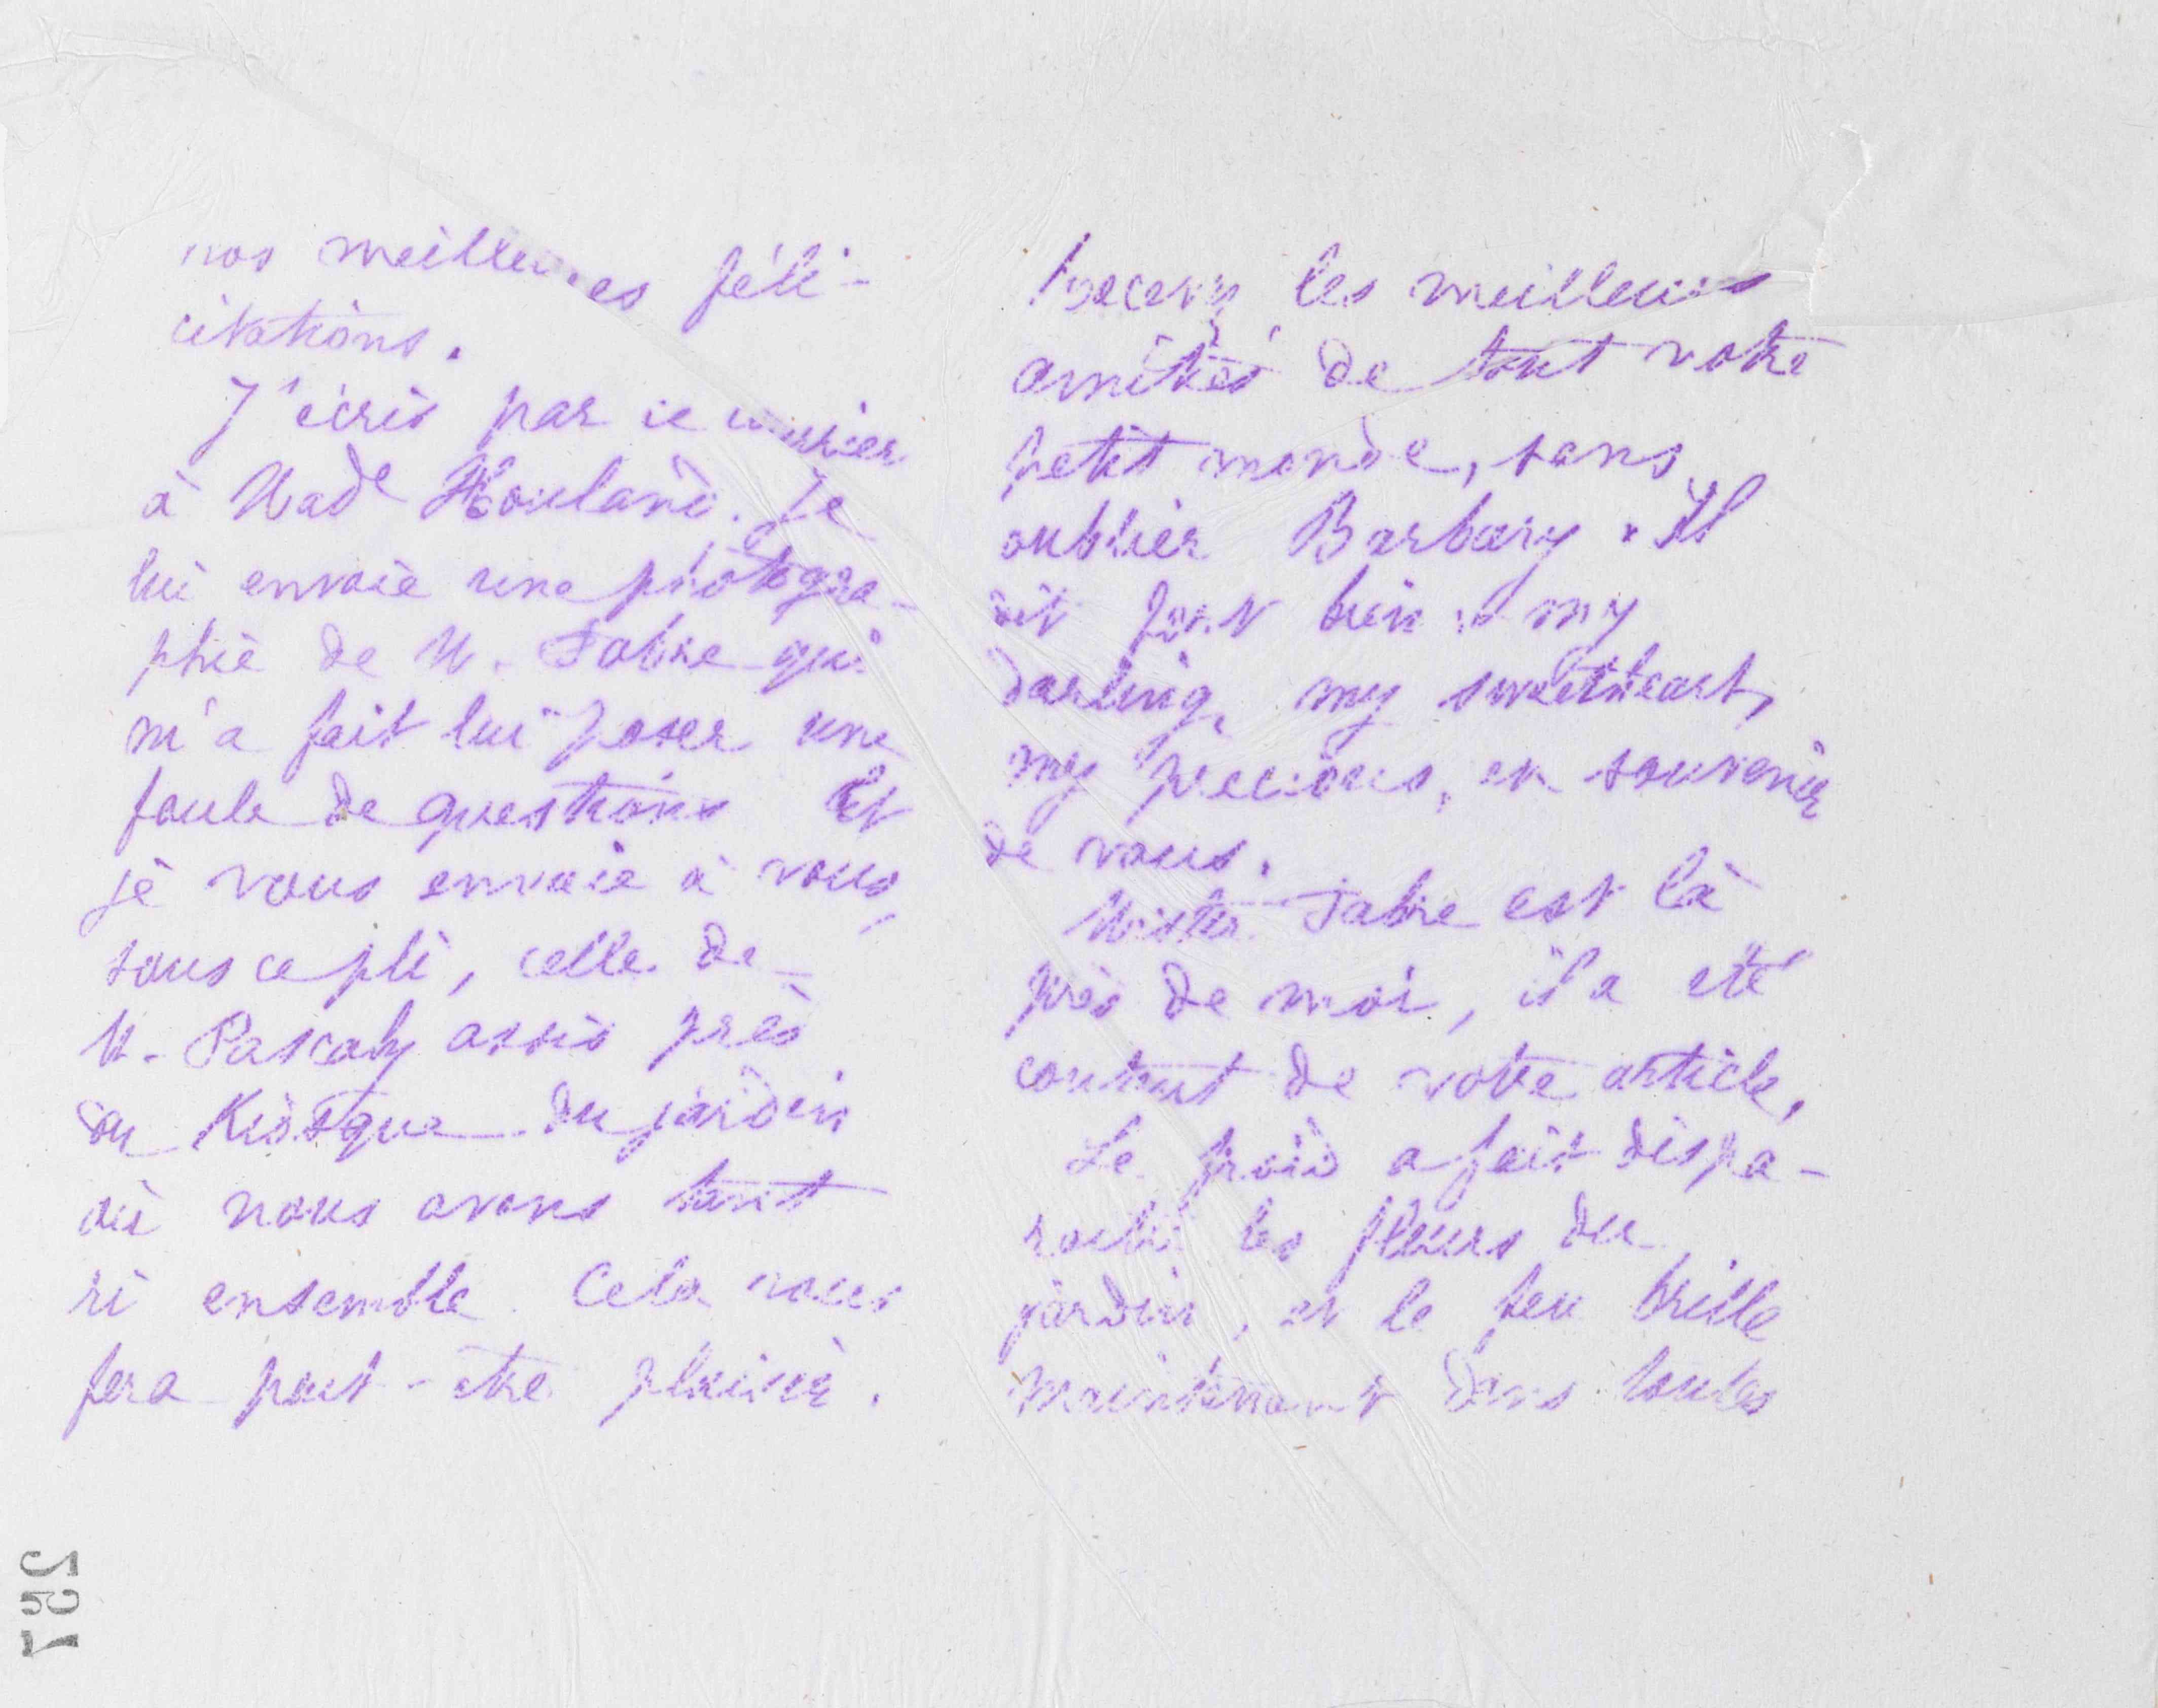 nos meilleures féli-
citations.
J'écris par ce courrier
à Made Howland. Je
lui envoie une photogra-
phie de M. Fabre qui
m'a fait lui poser une
foule de questions Et
je vous envoie à vous,
sous ce pli, celle de
M. Pascaly assis près
du Kiosque du jardin
où nous avons tant
ri ensemble. Cela vous
fera peut-être plaisir.
Recevez les meilleures
amitiés de tout votre
petit monde, sans
oublier Barbary. Il
dit fort bien my
darling, my sweetheart,
my precious, en souvenir
de vous.
Mister Fabre est là
près de moi, il a été
content de votre article.
Le froid a fait dispa-
raitre les fleurs du
jardin, et le feu brille
maintenant dans toutes
257